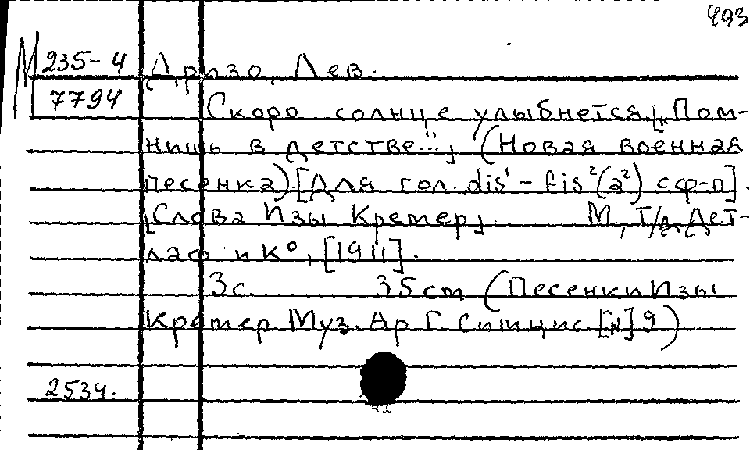 493
М 235-4 Дризо, Лев.
7794 Скоро солнце улыбнется. [„Пом-
нишь в детстве..."] (Новая военная
песенка) [Для гол. dis¹ - fis²(a²) с ф-п].
[Слова Изы Кремер] М,
и К°, [1911].
3 с. 35 cm (Песенки Изы
Кремер Муз. Ар Г. [№] 9)
2534.